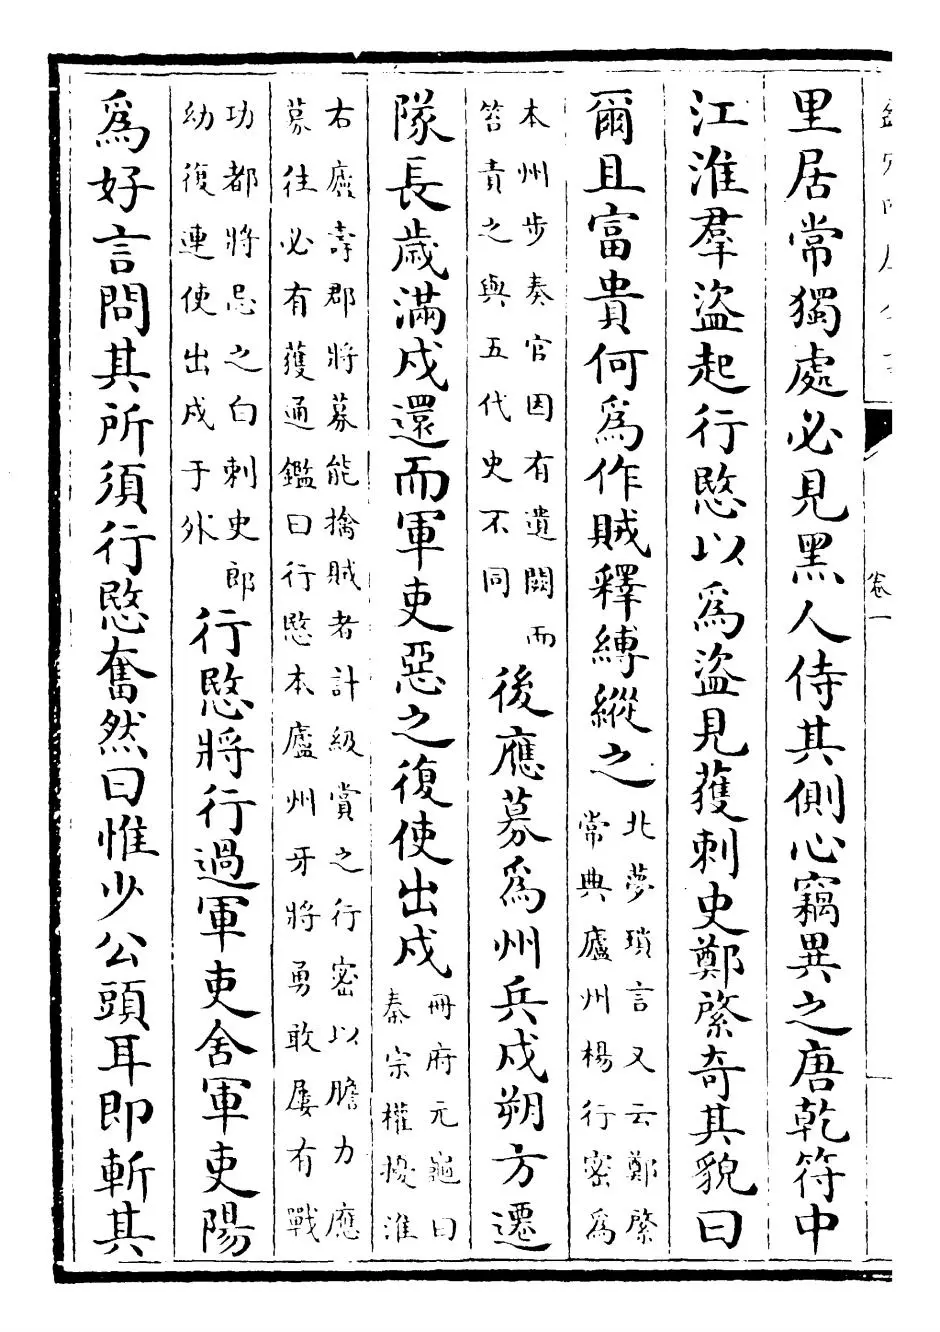 卷一
里居常獨處必見黑人侍其側心竊異之唐乾符中
江淮羣盜起行愍以爲盜見獲刺史鄭棨奇其貌曰
爾且富貴何爲作賊釋縛縱之
北夢瑣言又云鄭棨
常典廬州楊行密爲
本州步奏官因有遺闕而
笞責之與五代史不同
後應募爲州兵戍朔方遷
隊長歲滿戍還而軍吏惡之復使出戍
冊府元龜曰
秦宗權擾淮
右廬壽郡將募能擒賊者計級賞之行密以膽力應
募往必有獲通鑑曰行愍本廬州牙將勇敢屢有戰
功都將忌之白刺史郎
幼復連使出戍于外
行愍將行過軍吏舍軍吏陽
爲好言問其所須行愍奮然曰惟少公頭耳即斬其